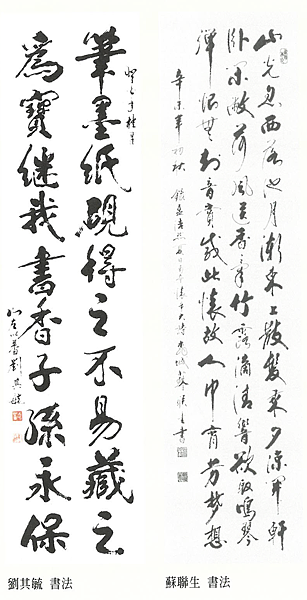 山光忽西落池月漸東上散髮乘夕涼開軒
臥閑敞荷風送香氣竹露滴清響欲取鳴琴
彈恨無知音賞感此懷故人中宵勞夢想
辛未年初秋 錄孟浩然夏日南亭懷辛大詩 蘇聯生書
蘇聯生 書法
筆墨紙硯得之不易藏之
爲寶继我書香子孫永保
劉其毓
劉其毓 書法